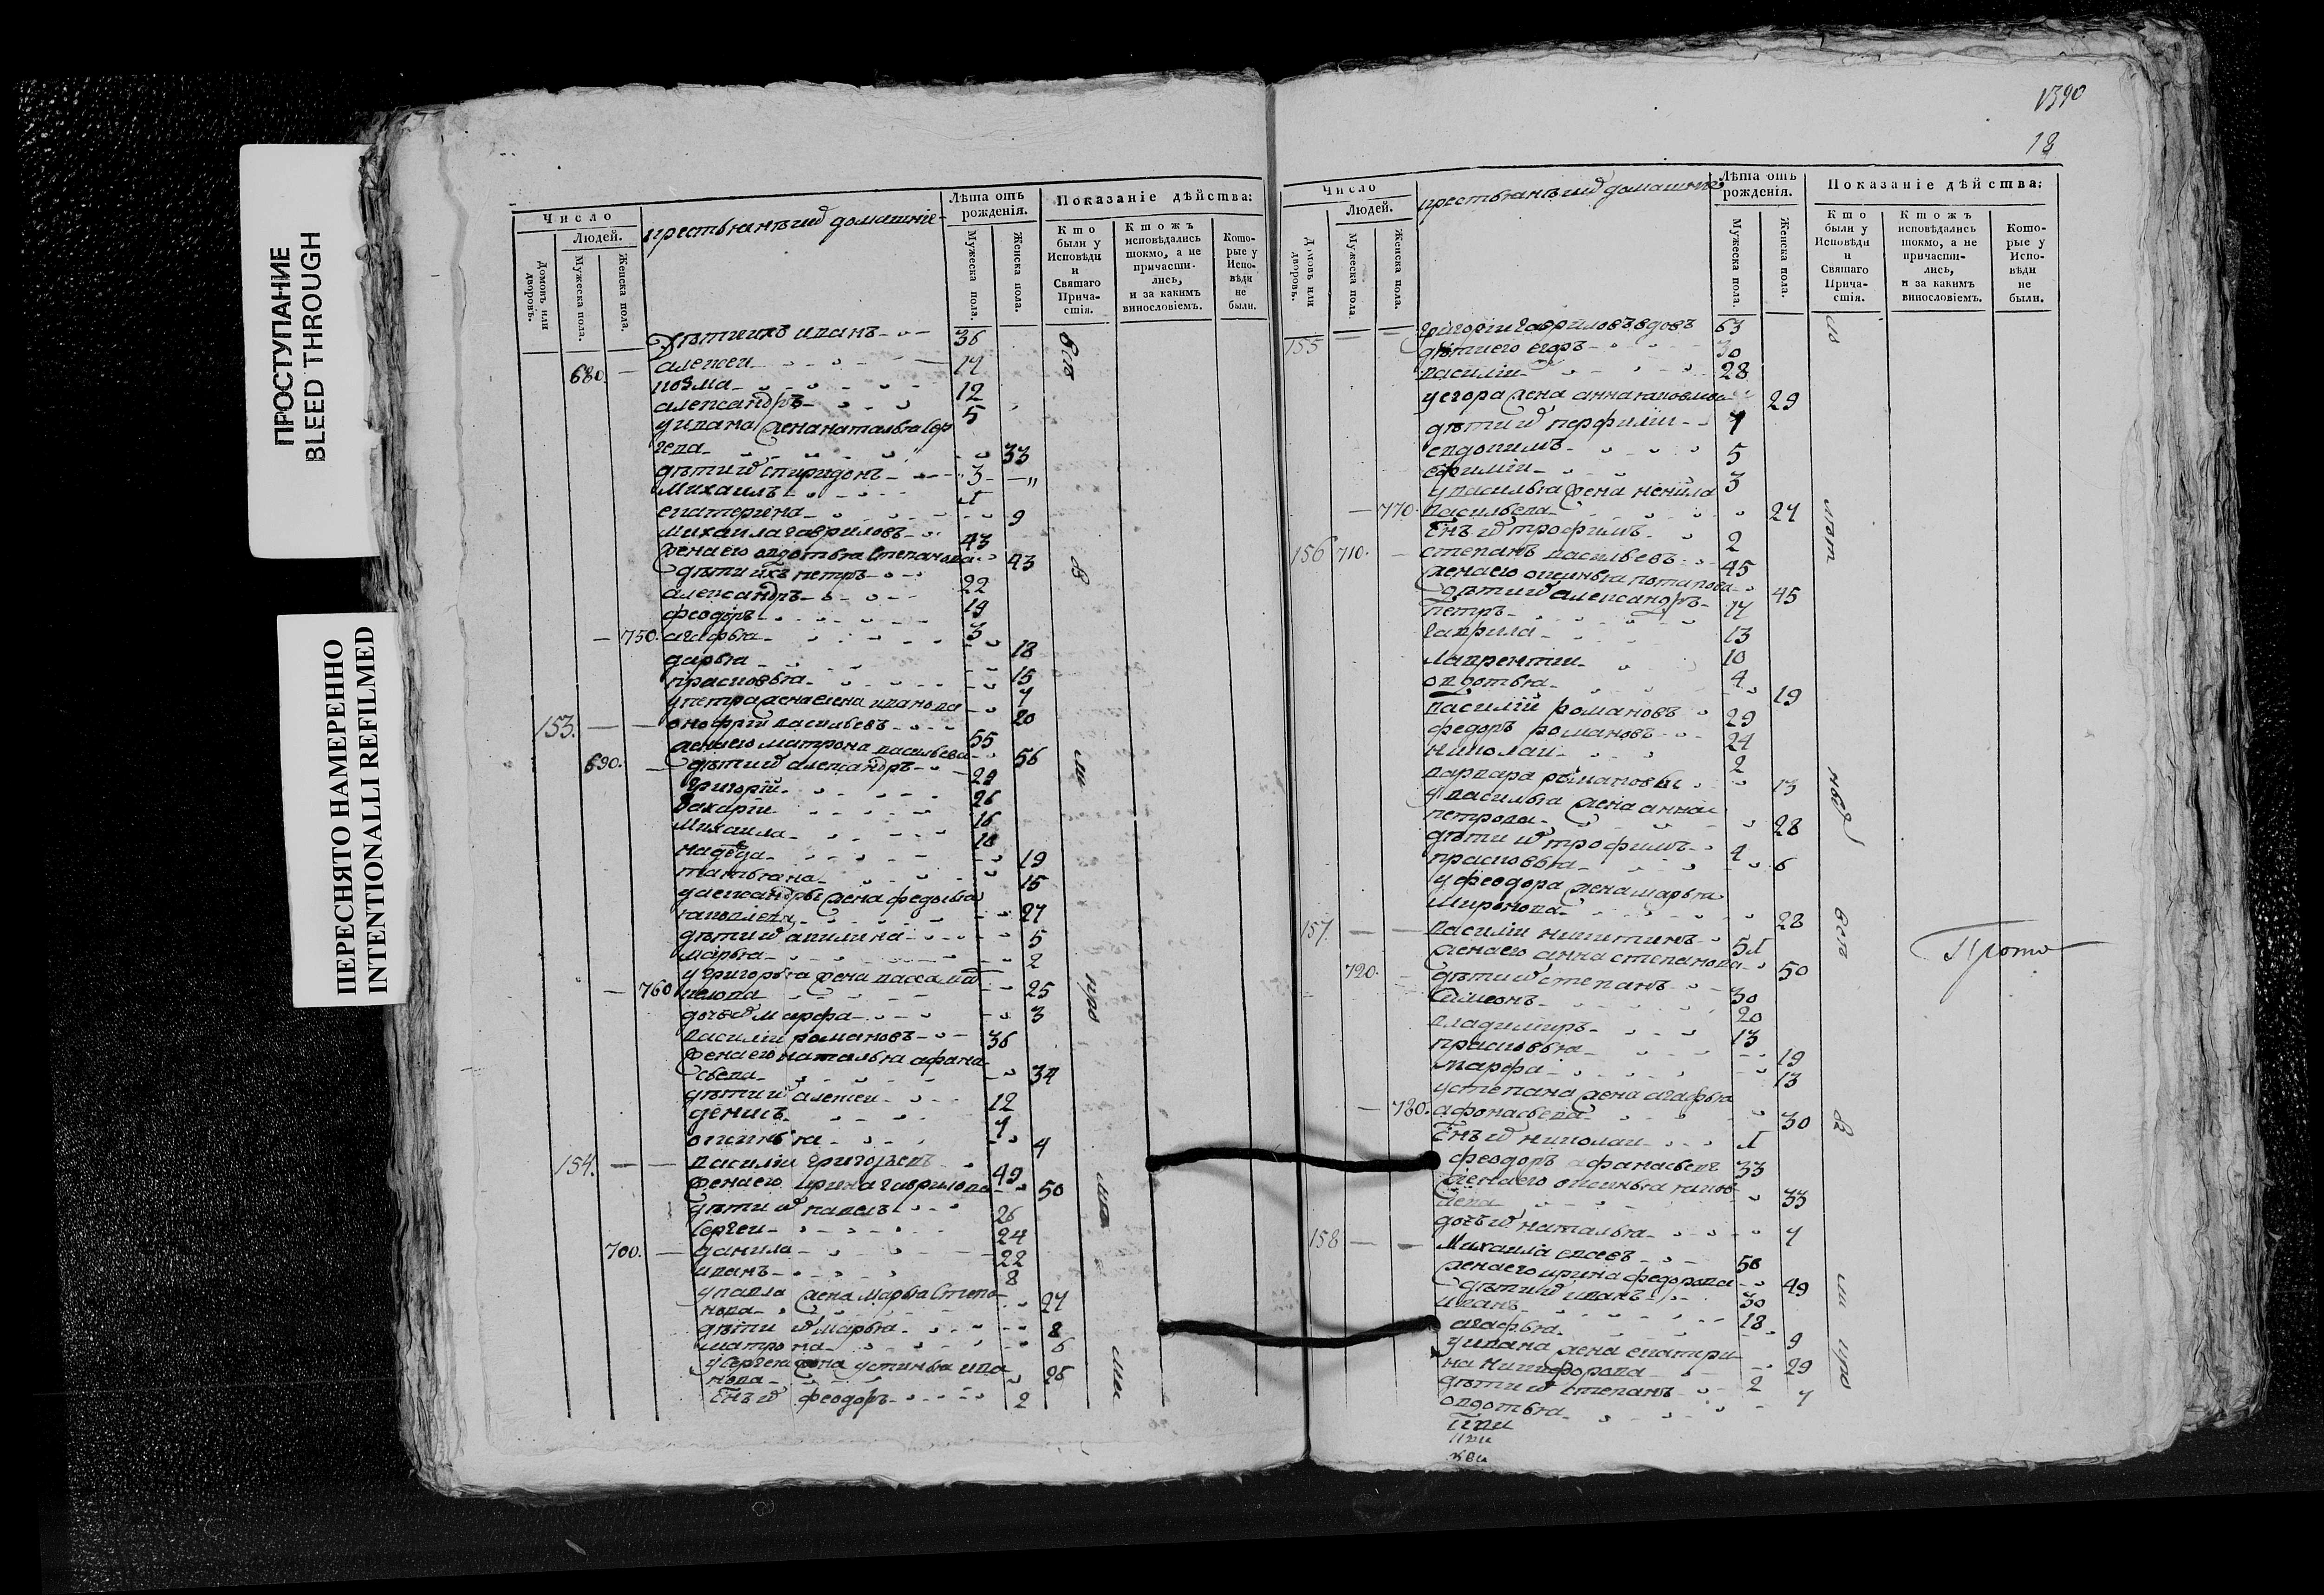 ПРОСТУПАНИЕ
BLEED THROUGH
ПЕРЕСНЯТО НАМЕРЕННО
INTENTIONALLI REFILMED
Число
Людей.
Домовъ или дворовъ.
Мужеска пола.
Женска пола.
крестьянъ и ихъ домашніе
Лѣта отъ рожденія.
Мужеска пола.
Женска пола.
Показаніе дѣйства:
Кто были у Исповѣди и Святаго Причастія.
Ктожъ исповѣдались токмо, а не причастились, и за какимъ винословіемъ.
Которые у Исповѣди не были.
дѣти ихъ иванъ 36
680. алексеи 17
козма 12
александръ 5
у ивана жена наталья сер
геева 33
дѣти ихъ спиридонъ 3
михаилъ 1
екатерина 9
михаила гавриловъ 43
жена его авдотья степанова 43
дѣти ихъ петръ 22
александръ 19
феодоръ 3
750. агафья 18
дарья 15
прасковья 7
у петра жена елена иванова 20
153. онофріи васильевъ 55
жена его матрона васильева 56
690. дѣти ихъ александръ 29
григоріи 26
захаріи 16
михаила 10
надежда 19
татьяна 15
у александры жена федосья
яковлева 27
дѣти ихъ акилина 5
марья 2
у григорья жена васса
760 25
дочь ихъ марфа 3
василіи романовъ 36
жена его наталья афана
сьева 34
дѣти ихъ алексеи 12
денисъ 7
оксинья 4
154. василіи григорьевъ 49
жена его ирина гаврилова 50
дѣти ихъ павелъ 26
сергеи 24
700. данила 22
иванъ 8
у павла жена марья степа
нова 27
дѣти ихъ марья 8
матрона 6
у сергея жена устинья ива
нова 26
сынъ ихъ феодоръ 2
1390
18
Число
Людей.
Домовъ или дворовъ.
Мужеска пола.
Женска пола.
крестьянъ и ихъ домашніе
Лѣта отъ рожденія.
Мужеска пола.
Женска пола.
Показаніе дѣйства:
Кто были у Исповѣди и Святаго Причастія.
Ктожъ исповѣдались токмо, а не причастились, и за какимъ винословіемъ.
Которые у Исповѣди не были.
155 григоріи гавриловъ вдовъ 63
дѣти его егоръ 30
василіи 28
у егора жена анна яковлева 29
дѣти ихъ перфиліи 7
евдокимъ 5
ефиміи 3
у василья жена ненила
770. васильева 27
сынъ ихъ трофимъ 2
156 710. степанъ васильевъ 45
жена его оксинья потапова 45
дѣти ихъ александръ 17
петръ 13
гаврила 10
лаврентіи 4
авдотья 19
василіи романовъ 29
федоръ романовъ 24
николаи 2
варвара романовы 13
у василья жена анна
петрова 28
дѣти ихъ трофимъ 2
прасковья 6
у феодора жена марья
миронова 28
157. василіи никитинъ 51
жена его анна степанова 50
720. дѣти ихъ степанъ 30
симеонъ 20
владимиръ 13
прасковья 19
марфа 13
у степана жена агафья
780. афонасьева 30
сынъ ихъ николаи 1
феодоръ афанасьевъ 33
жена его оксинья яков
лева 33
дочь ихъ наталья 7
158 михаила саввъ 50
жена его ирина федорова 49
дѣти ихъ иванъ 30
иванъ 18
агафья 9
у ивана жена екатери
на никифорова 29
дѣти ихъ степанъ 2
авдотья 7
Прото